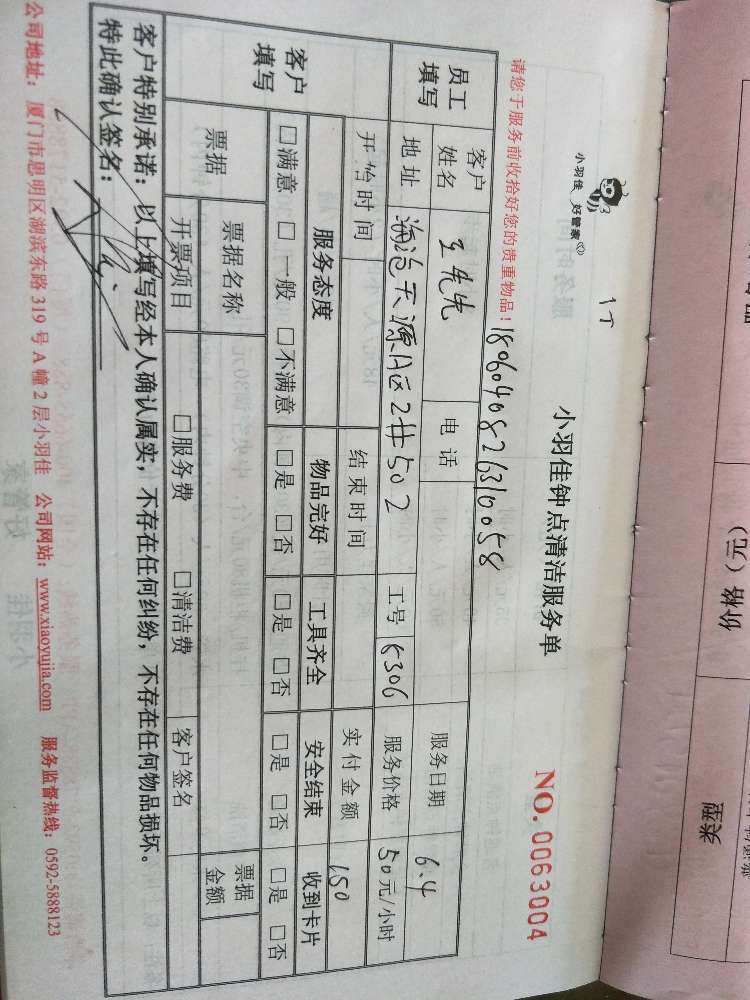 小羽佳 好管家
1T
小羽佳钟点清洁服务单
NO. 0063004
请您于服务前收拾好您的贵重物品！
18960408263|0058
员工填写
客户姓名 王先生 电话 服务日期 6.4
地址 海沧天源A区2#502 工号 K306 服务价格 50元/小时
开始时间 结束时间 实付金额 150
客户填写
服务态度 物品完好 工具齐全 安全结束 收到卡片
□满意 □一般 □不满意 □是 □否 □是 □否 □是 □否 □是 □否
票据 票据名称 票据金额
开票项目 □服务费 □清洁费 客户签名
客户特别承诺：以上填写经本人确认属实，不存在任何纠纷，不存在任何物品损坏。
特此确认签名：
公司地址：厦门市思明区湖滨东路319号A幢2层小羽佳 公司网站：www.xiaoyujia.com 服务监督热线：0592-5888123
价格（元）